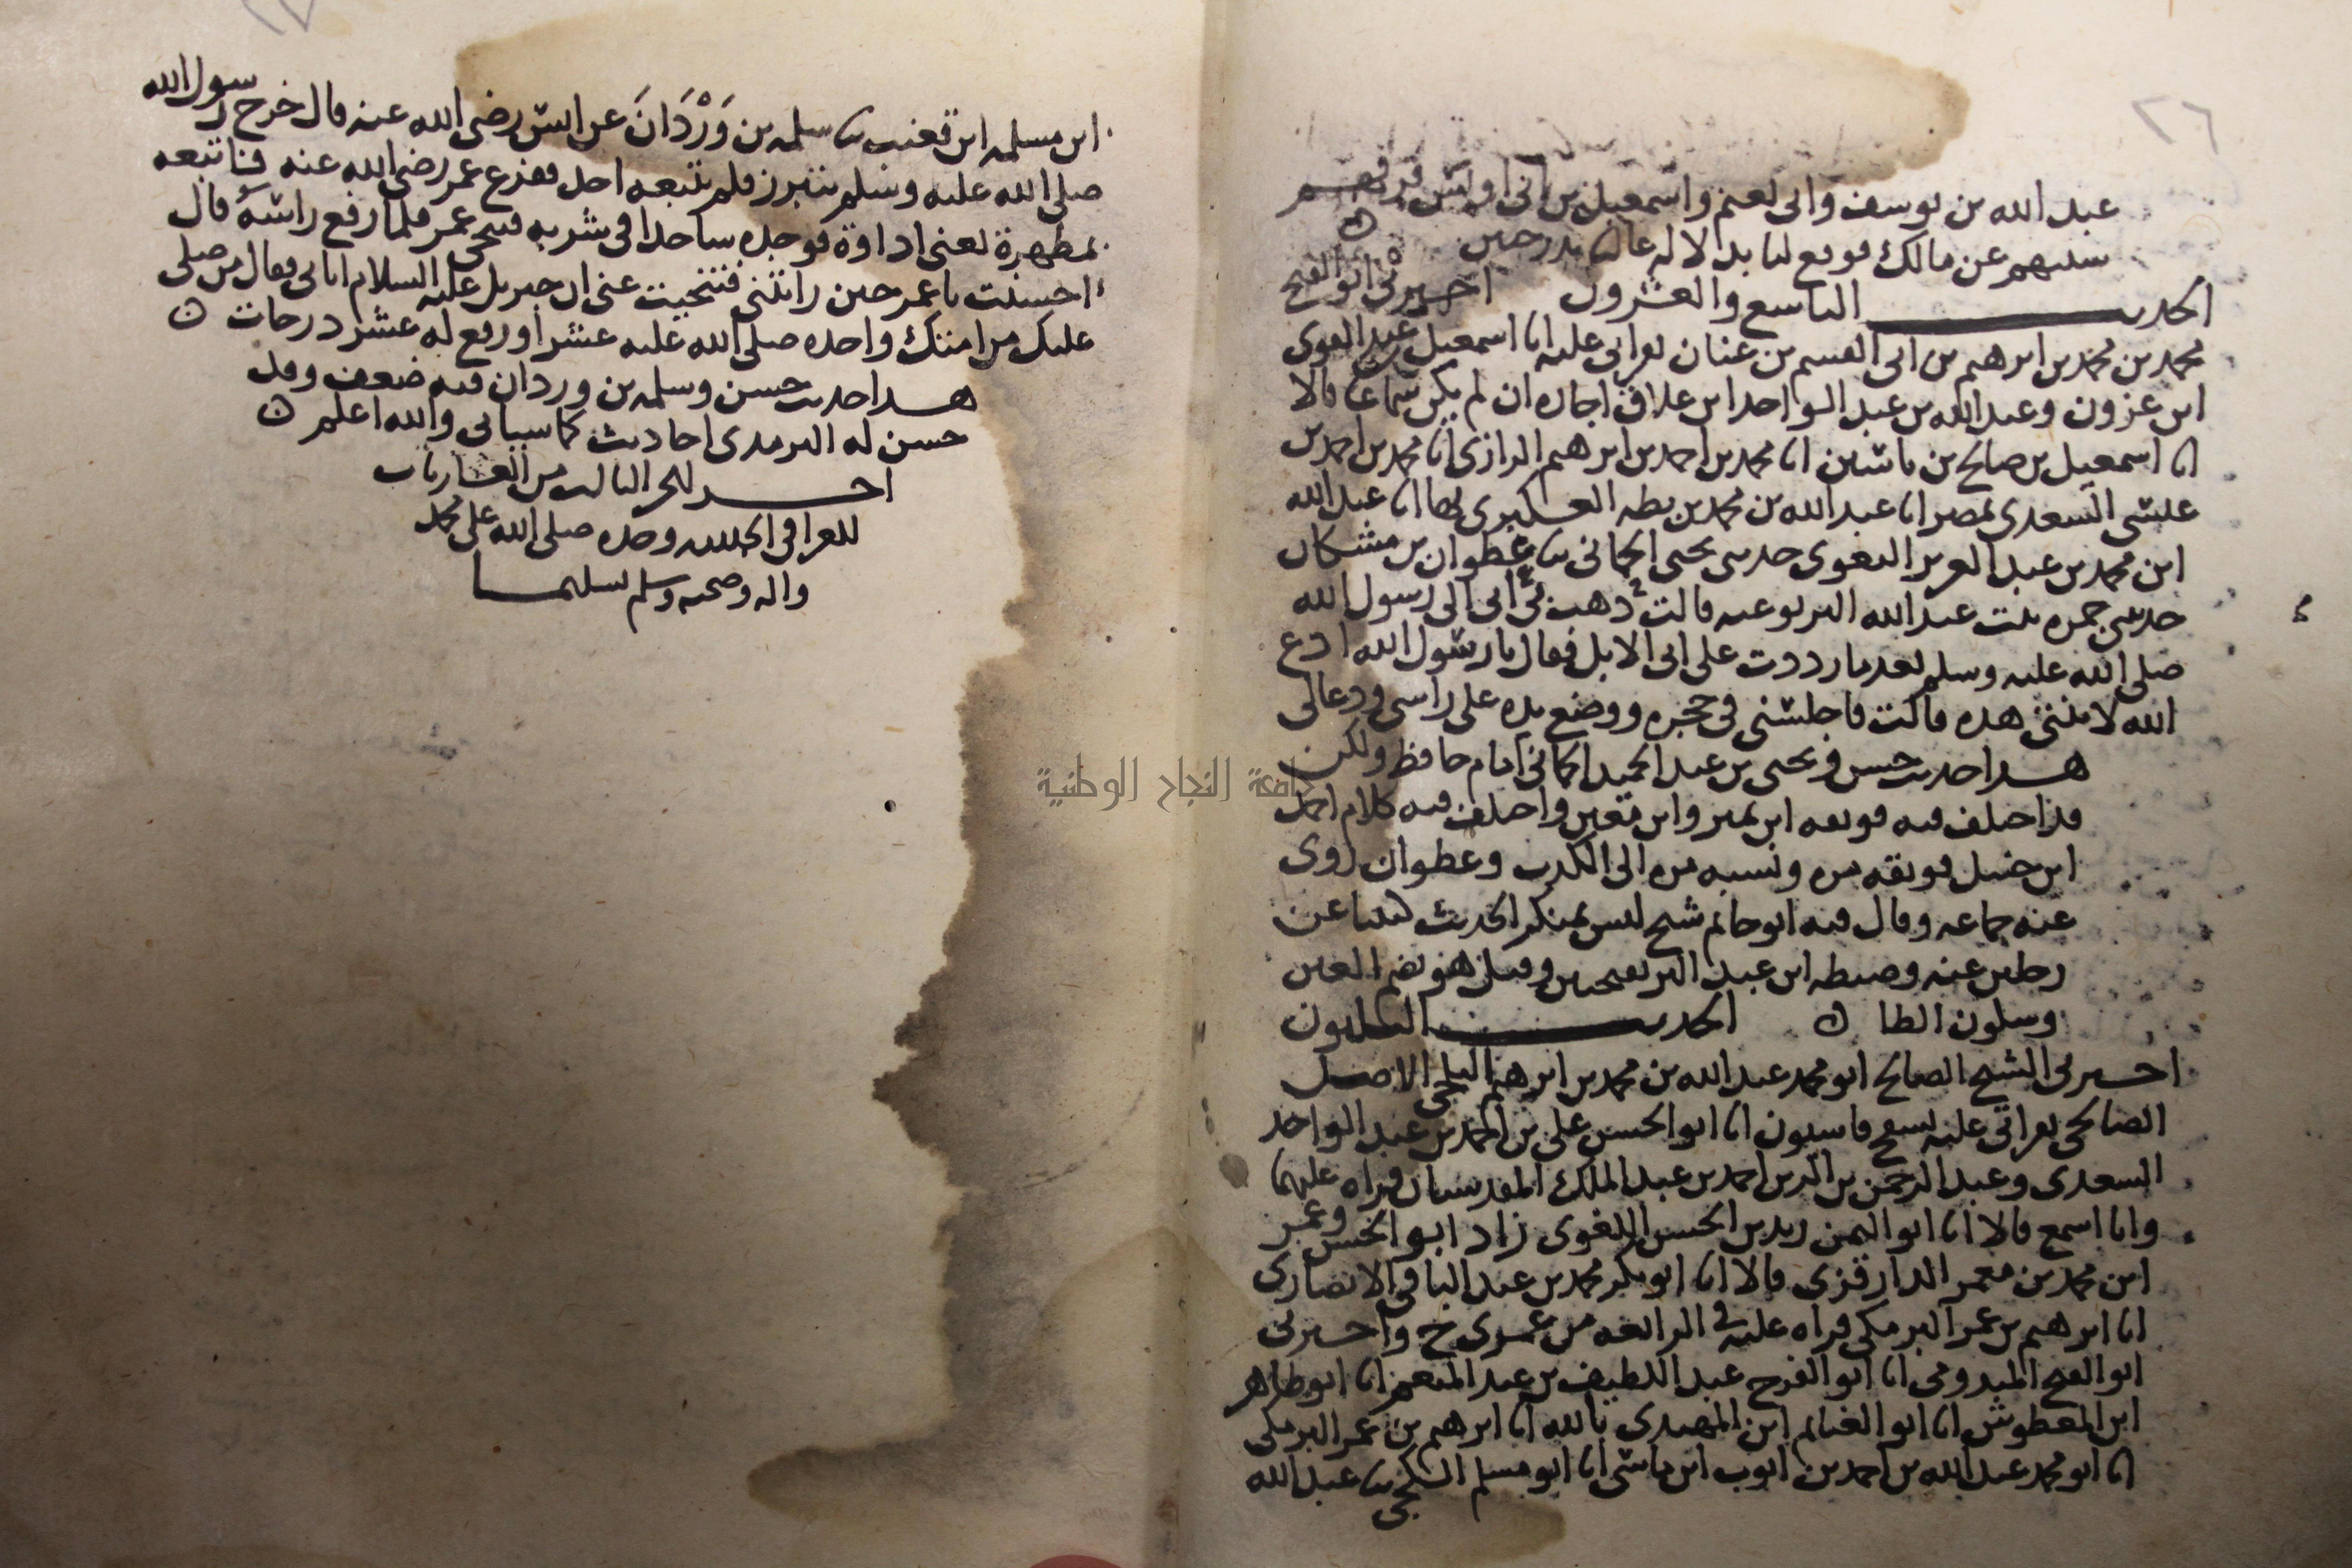 ٢٦
عبد الله بن يوسف وابي نعيم واسمعيل بن ابي اويس فرقهم
ستتهم عن مالك فوقع لنا بدلا له عاليا بدرجتين ن
الحديث التاسع والعشرون اخبرني ابو الفتح
محمد بن محمد بن ابرهيم بن ابي القسم بن عنان بقراتي عليه انا اسمعيل بن عبد القوي
ابن عزون وعبد الله بن عبد الواحد ابن علاق اجازه ان لم يكن سماعا قالا
انا اسمعيل بن صالح بن ياسين انا محمد بن احمد بن ابرهيم الرازي انا محمد بن احمد بن
عيسى السعدي بمصر انا عبد الله بن محمد بن بطه العكبري بها انا عبد الله
ابن محمد بن عبد العزيز البغوي حدثني يحيى الحماني ثنا عطوان بن مشكان
حدثتني جمره بنت عبد الله اليربوعيه قالت ذهب بي ابي الى رسول الله
صلى الله عليه وسلم بعد ما رددت على ابي الابل فقال يا رسول الله ادع
الله لابنتي هذه قالت فاجلسني في حجره ووضع يده على راسي ودعا لي
هذا حديث حسن ويحيى بن عبد الحميد الحماني امام حافظ ولكن
قد اختلف فيه فوثقه ابن نمير وابن معين واختلف فيه كلام احمد
ابن حنبل فوثقه مره ونسبه مره الى الكذب وعطوان روى
عنه جماعه وقال فيه ابو حاتم شيخ ليس بمنكر الحديث كتبنا عن
رجلين عنه وضبطه ابن عبد البر بفتحتين وقيل هو بضم العين
وسكون الطا ن الحديث الثلاثون
اخبرني الشيخ الصالح ابو محمد عبد الله بن محمد بن ابرهيم البلخي الاصل
الصالحي بقراتي عليه بسفح قاسيون انا ابو الحسن علي بن احمد بن عبد الواحد
السعدي وعبد الرحمن بن الزين احمد بن عبد الملك المقدسيان قراه عليهما
وانا اسمع قالا انا ابو اليمن زيد بن الحسن اللغوي زاد ابو الحسن وعمر
ابن محمد بن معمر الدارقزي قالا انا ابو بكر محمد بن عبد الباقي الانصاري
انا ابرهيم بن عمر البرمكي قراه عليه في الرابعه من عمري ح واخبرني
ابو الفتح الميدومي انا ابو الفرج عبد اللطيف بن عبد المنعم انا ابو طاهر
ابن المعطوش انا ابو الغنايم ابن المهتدي بالله انا ابرهيم بن عمر البرمكي
انا ابو محمد عبد الله بن احمد بن ايوب ابن ماسي انا ابو مسلم الكجي ثنا عبد الله
ابن مسلمه ابن قعنب ثنا سلمه بن وَرْدَانَ عن انس رضي الله عنه قال خرج رسول الله
صلى الله عليه وسلم يتبرز فلم يتبعه احد ففزع عمر رضي الله عنه فاتبعه
بمطهرة يعني اداوة فوجده ساجدا في شربه فتنحى عمر فلما رفع راسه قال
احسنت يا عمر حين رايتني فتنحيت عني ان جبريل عليه السلام اتاني فقال من صلى
عليك من امتك واحده صلى الله عليه عشرا ورفع له عشر درجات ن
هذا حديث حسن وسلمه بن وردان فيه ضعف وقد
حسن له الترمذي احاديث كما سياتي والله اعلم ن
اخر الجز الثالث من العشاريات
للعراقي الحمد لله وحده صلى الله على محمد
واله وصحبه وسلم تسليما
جامعة النجاح الوطنية